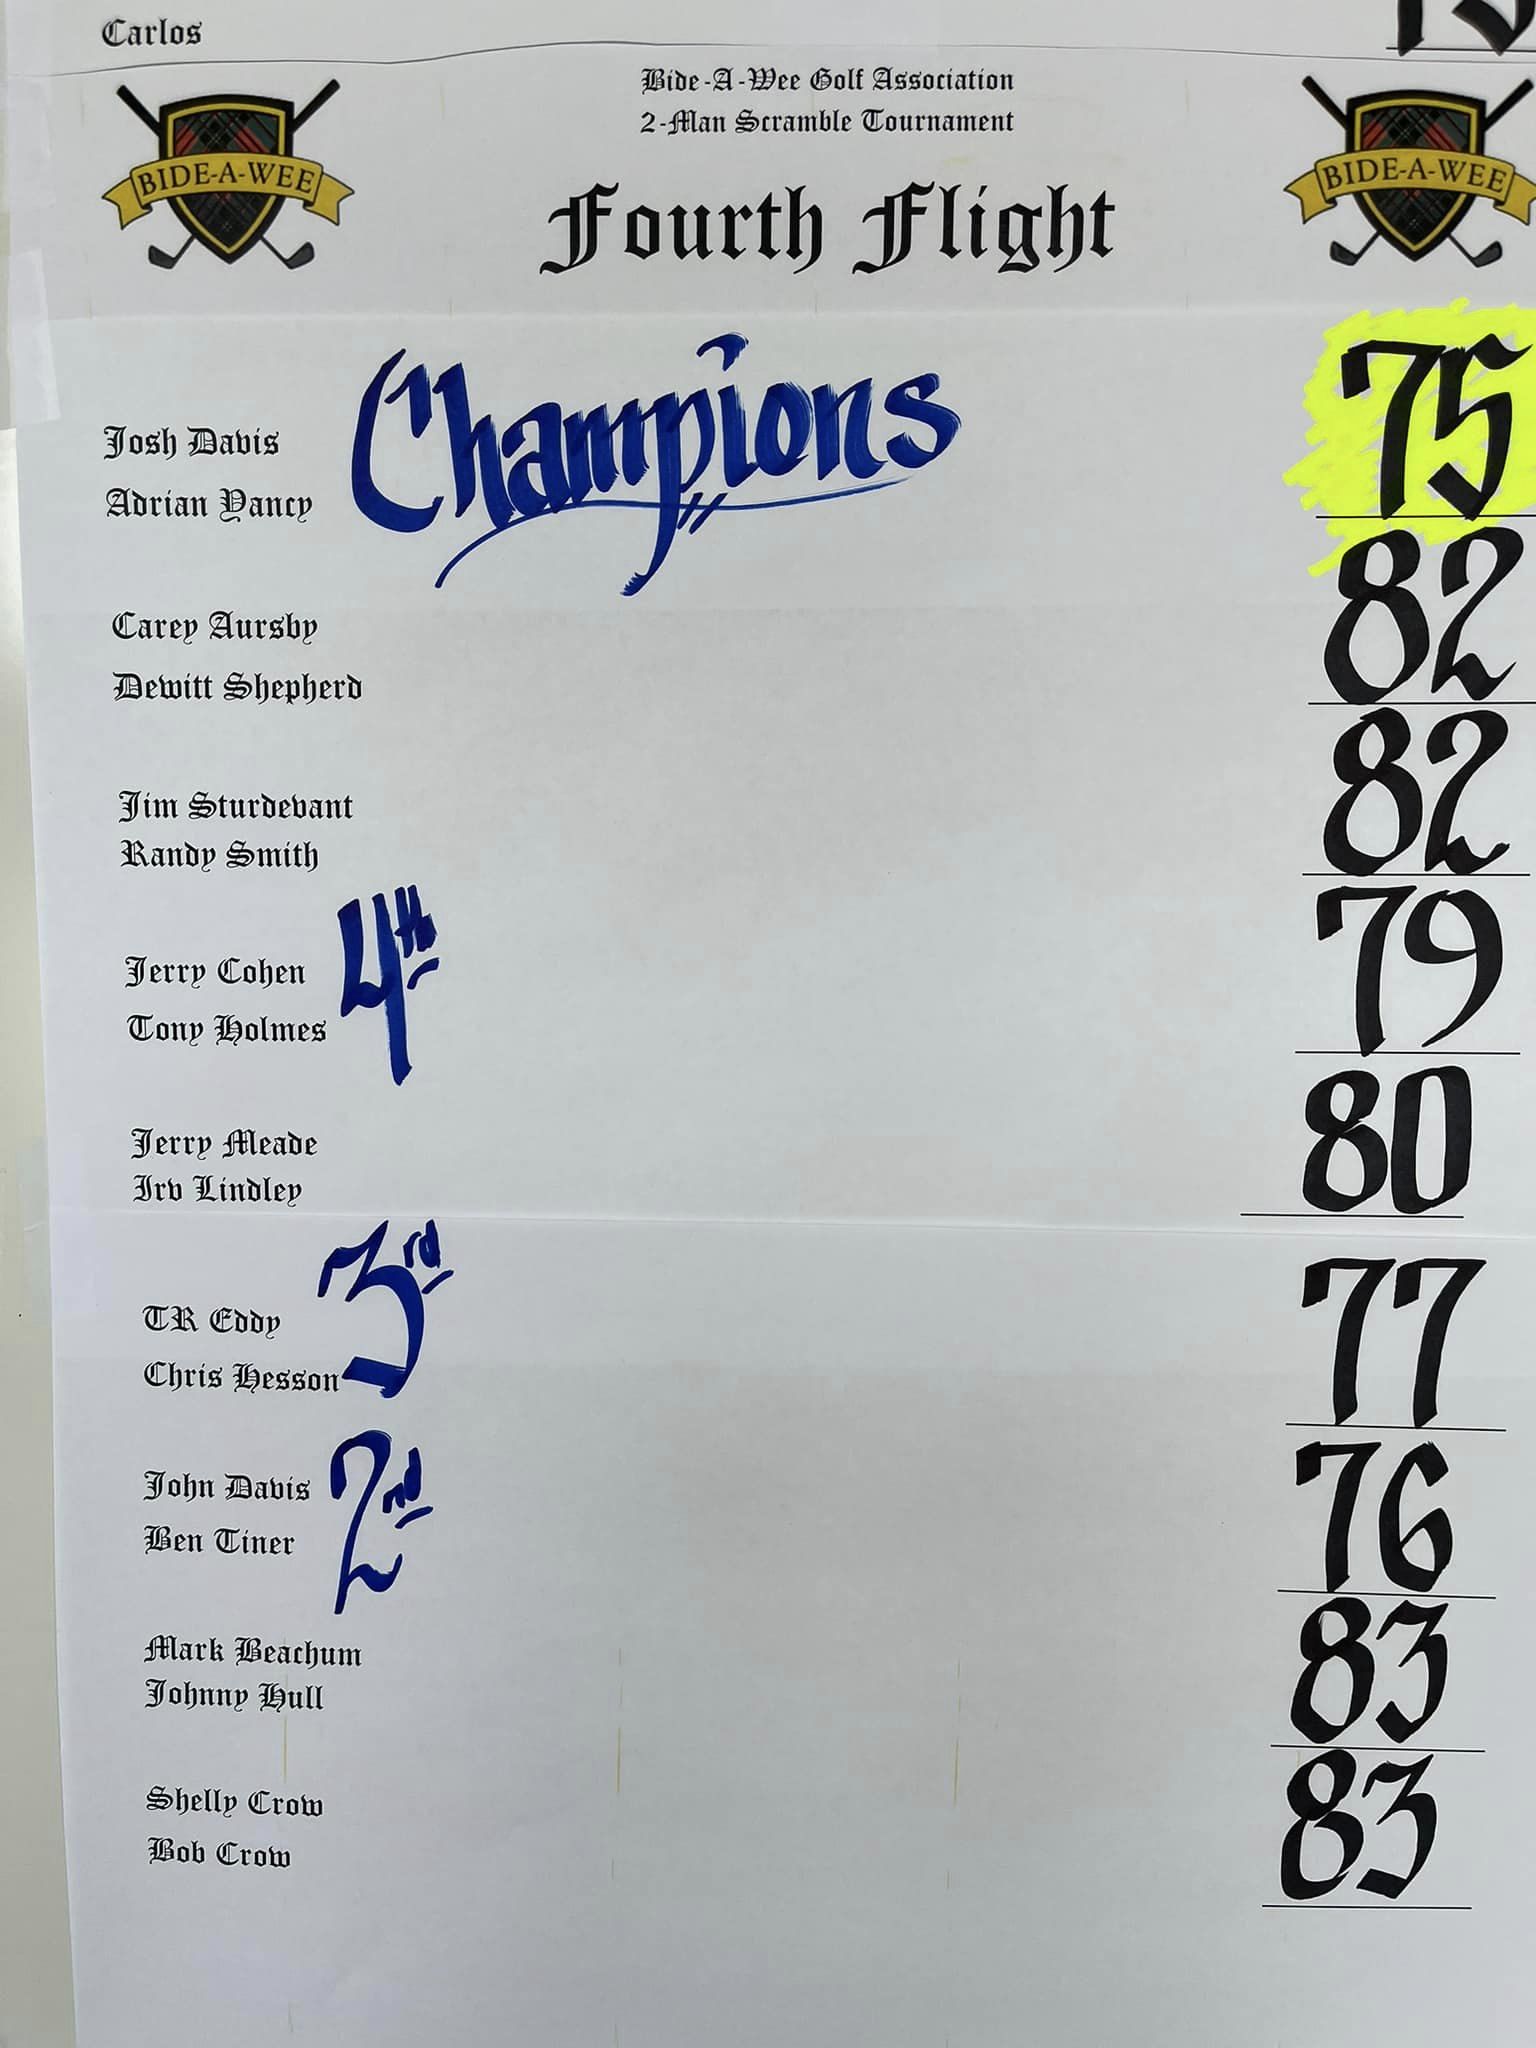 Carlos
Bide-A-Wee Golf Association
2-Man Scramble Tournament
BIDE-A-WEE
BIDE-A-WEE
Fourth Flight
Champions
75
Josh Davis
Adrian Yancy
82
Carey Aursby
Dewitt Shepherd
82
Jim Sturdevant
Randy Smith
4th
79
Jerry Cohen
Tony Holmes
80
Jerry Meade
Irv Lindley
3rd
77
TR Eddy
Chris Hesson
2nd
76
John Davis
Ben Tiner
83
Mark Beachum
Johnny Hull
83
Shelly Crow
Bob Crow